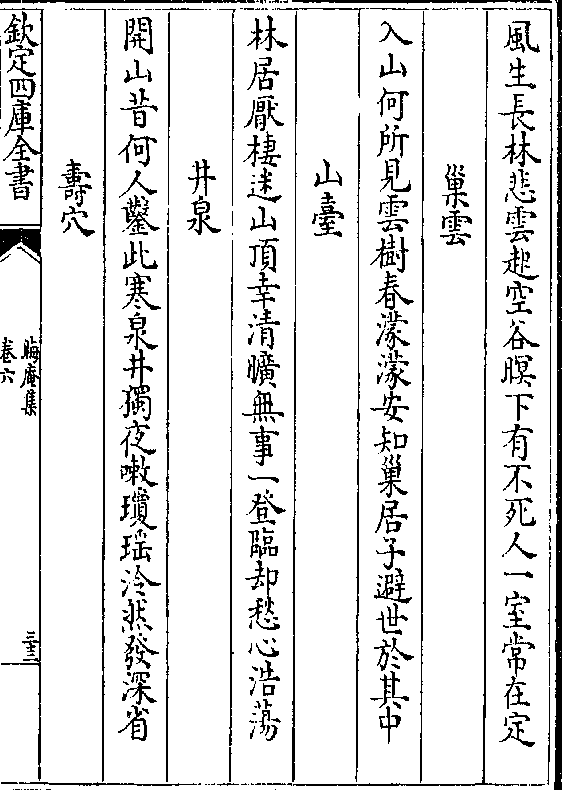 風生長林悲雲起空谷暝下有不死人一室常在定
巢雲
入山何所見雲樹春濛濛安知巢居子避世於其中
山臺
林居厭棲迷山頂幸清曠無事一登臨却愁心浩蕩
井泉
開山昔何人鑿此寒泉井獨夜嗽瓊瑶泠然發深省
壽穴
欽定四庫全書
晦庵集
卷六
三十三